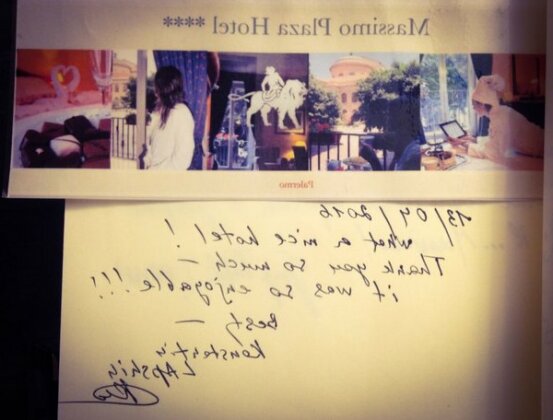 Massimo Plaza Hotel ****
Palermo
13/04/2016
what a nice hotel!
Thank you so much —
it was so enjoyable!!!
Best —
Konstantin
LAPshin